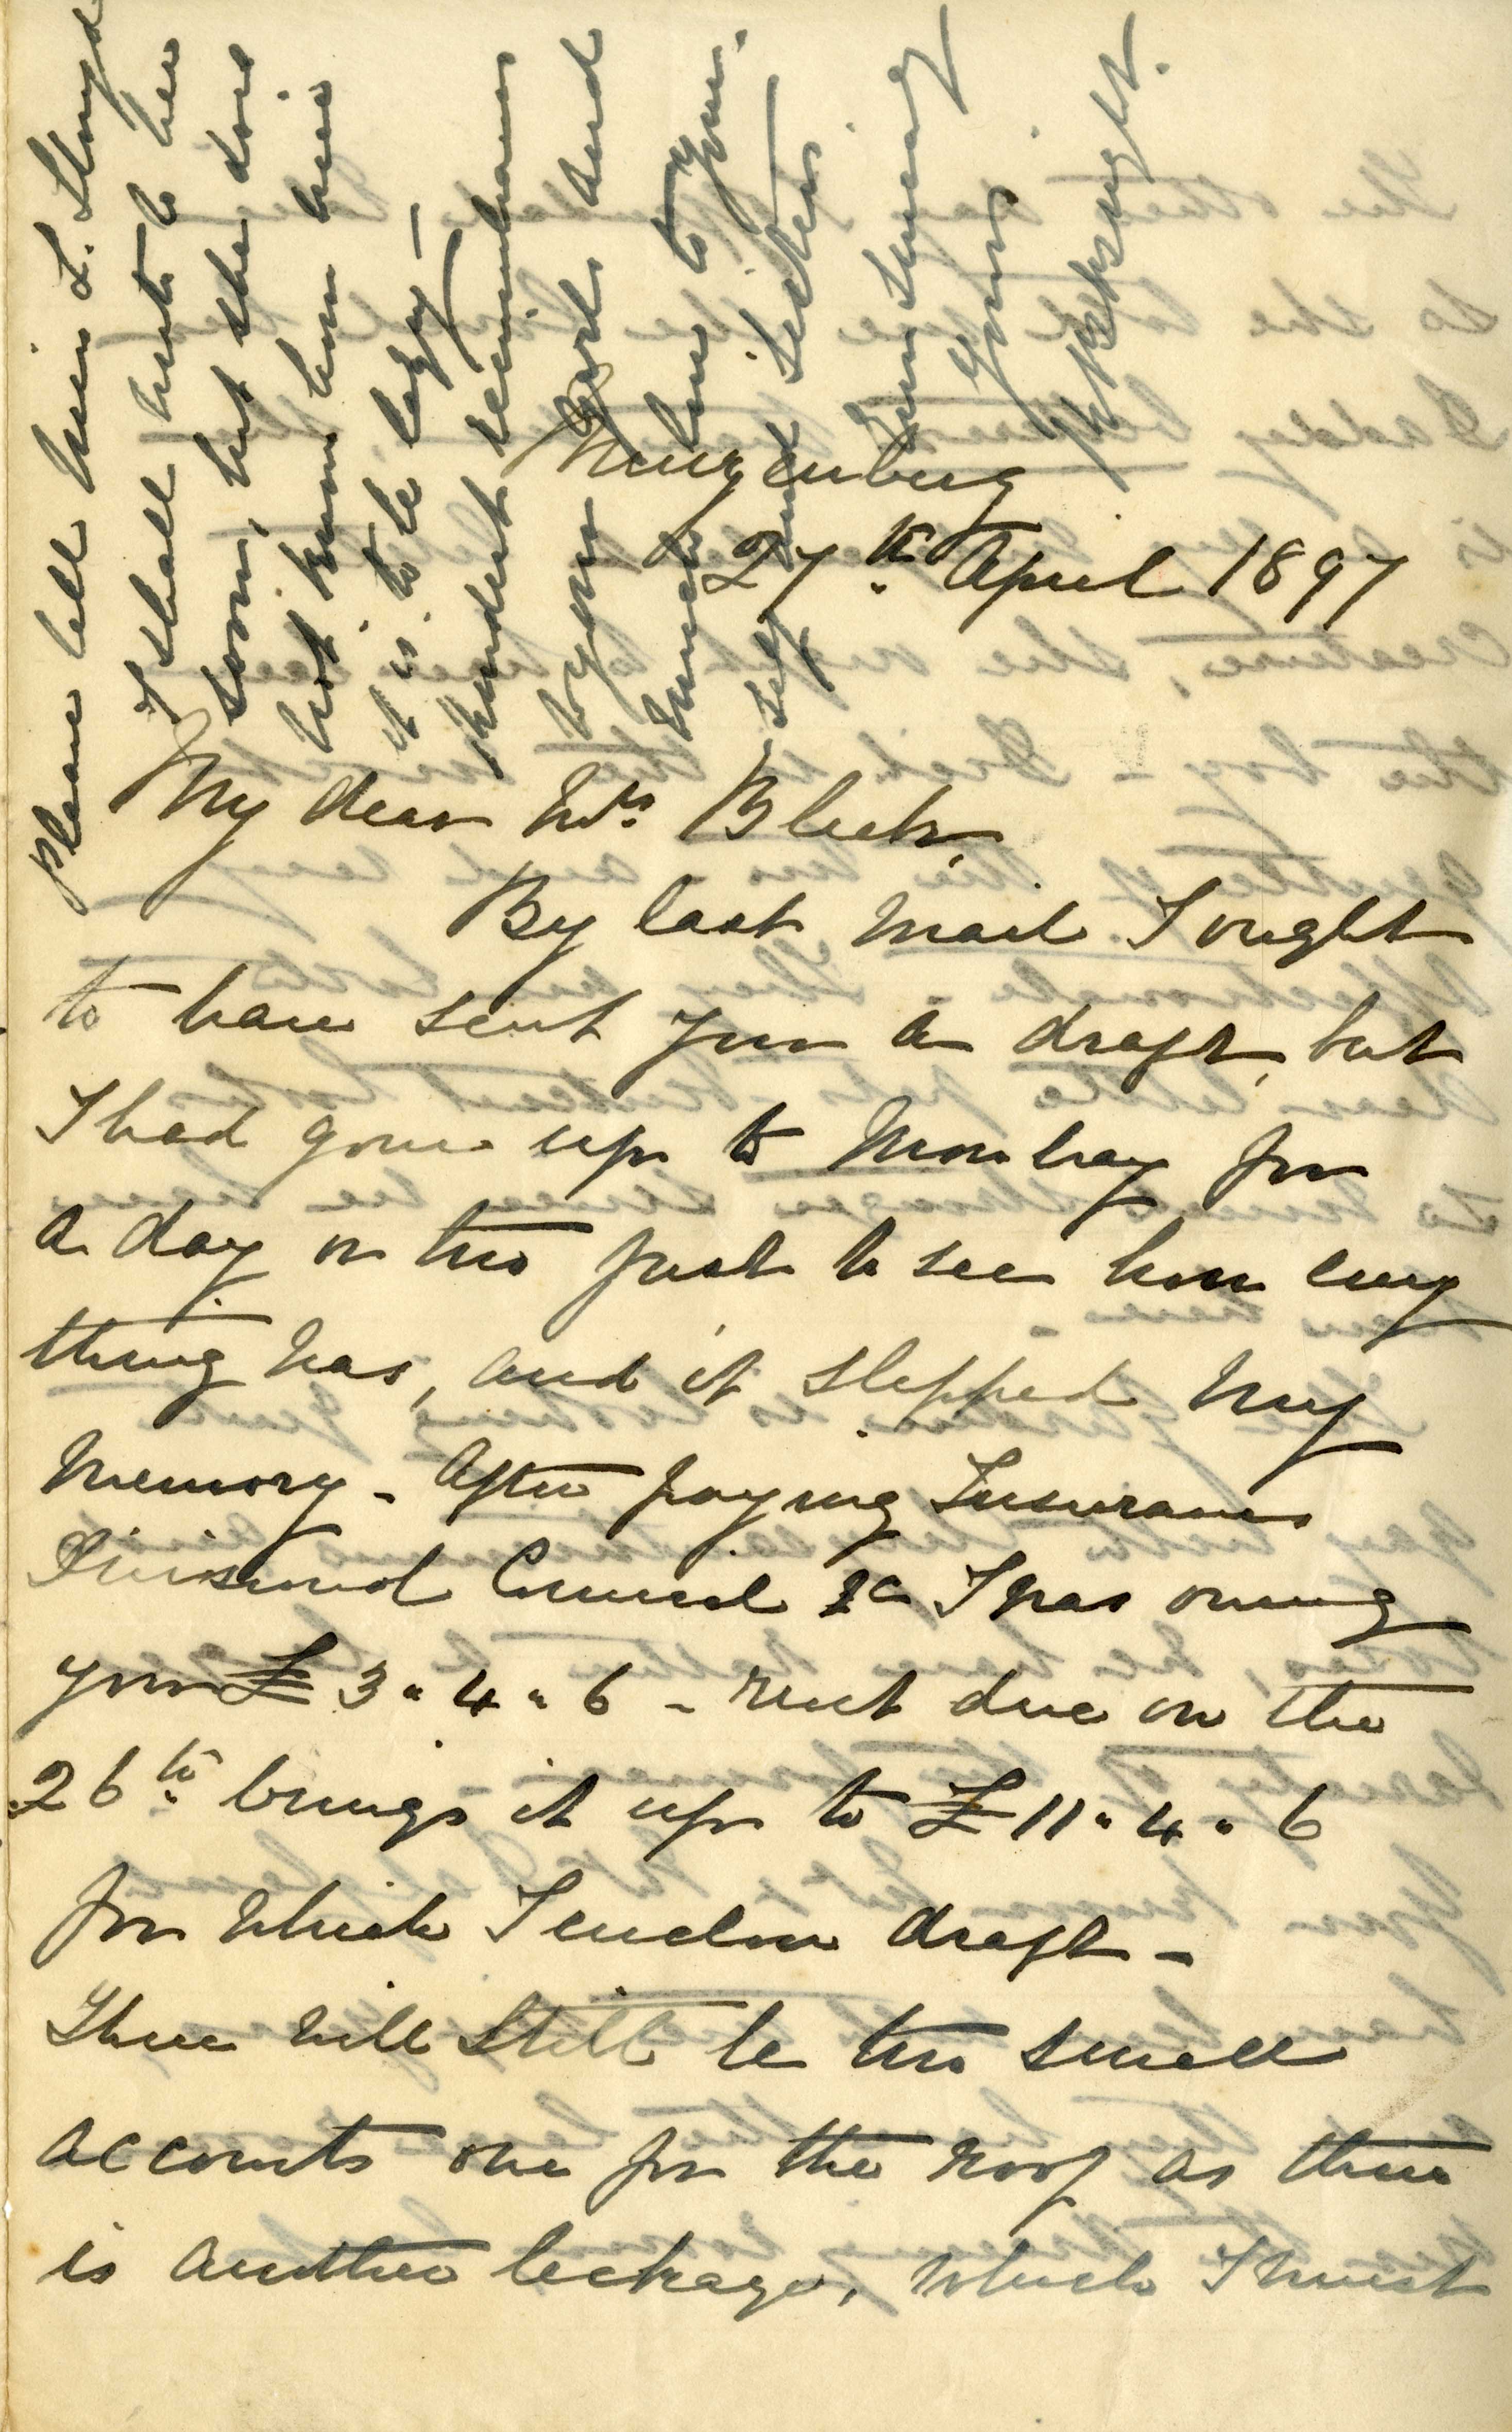 Muizenberg
27th April 1897
My dear Mrs Bleek,
By last mail I ought
to have sent you a draft, but
I had gone up to Mowbray for
a day or two just to see how every
thing was, and it slipped my
memory - After paying Insurance
Divisional Council &c I was owing
you £3"4"6 - rent due on the
26th brings it up to £11"4"6
for which I enclose draft -
There will still be two small
accounts one for the roof as there
is another leakage, which I must
Please tell Miss L. Lloyd
I shall write to her
soon, but she does
not know how nice
it is to be lazy -
Kindest remembrances
to your girls and
much love to you
self and sisters
Ever sincerely
Yours